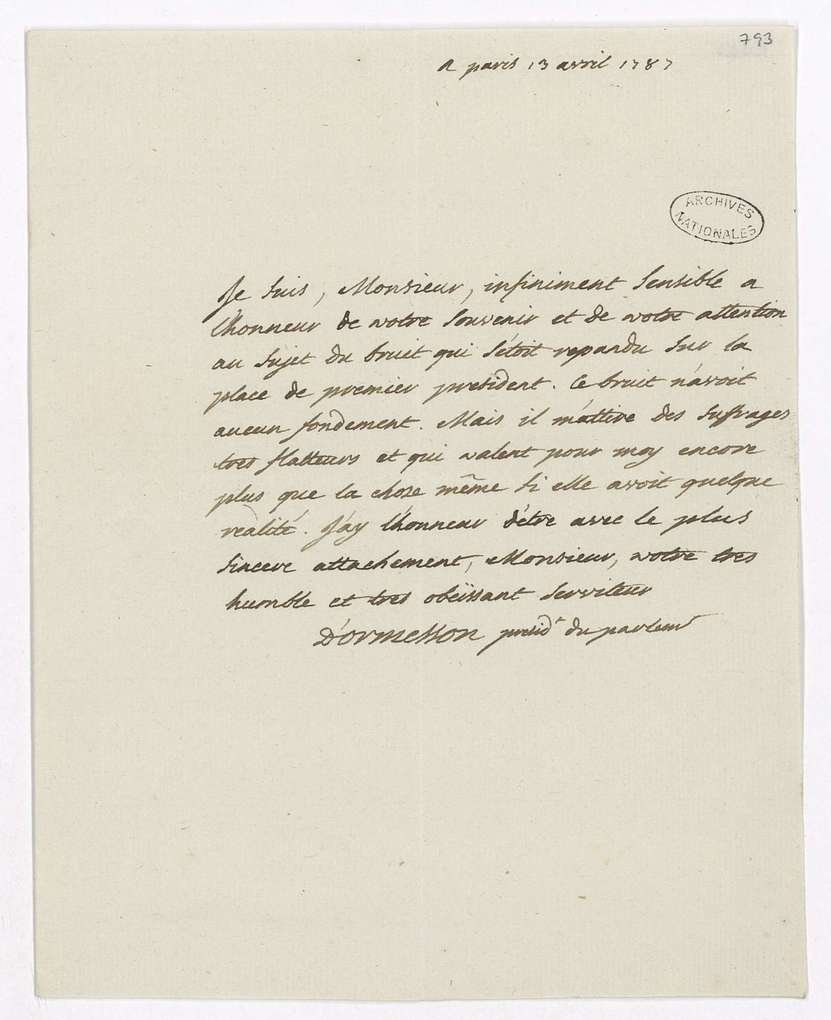 793
a paris 13 avril 1787
ARCHIVES
NATIONALES
Je suis, Monsieur, infiniment sensible a
l'honneur de votre souvenir et de votre attention
au sujet du bruit qui s'étoit repandu sur la
place de premier president. Ce bruit n'avoit
aucun fondement. Mais il m'attire des suffrages
tres flatteurs et qui valent pour moy encore
plus que la chose même si elle avoit quelque
realité. J'ay l'honneur d'être avec le plus
sincere attachement, Monsieur, votre tres
humble et tres obeïssant serviteur
D'ormesson presidt du parlemt